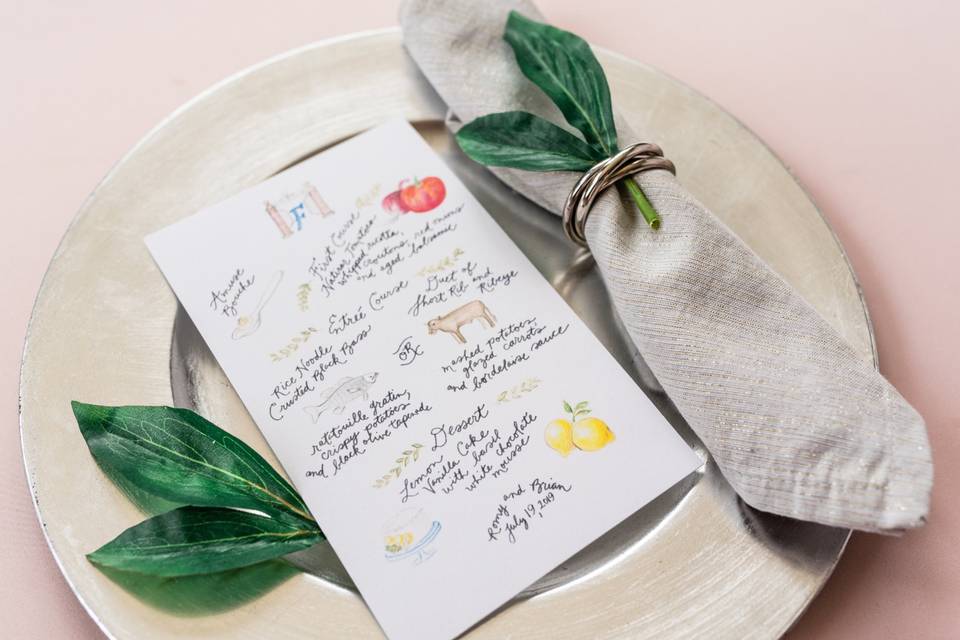 F
Amuse
Bouche
First Course
Native Tomatoes
whipped ricotta,
croutons, red onions
and aged balsamic
Entrée Course
Rice Noodle
Crusted Black Bass
ratatouille gratin,
crispy potatoes,
and black olive tapenade
OR
Duet of
Short Rib and
Ribeye
mashed potatoes,
glazed carrots
and bordelaise sauce
Dessert
Lemon
Vanilla Cake
with basil
white chocolate
mousse
Romy and Brian
July 19, 2019